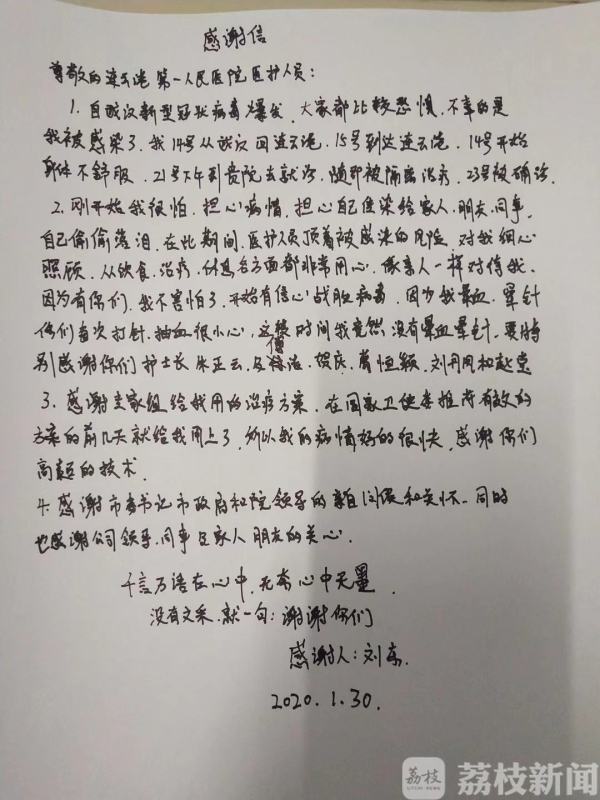 感谢信
尊敬的连云港第一人民医院医护人员：
1. 自武汉新型冠状病毒爆发，大家都比较恐惧，不幸的是
我被感染了，我14号从武汉回连云港，15号到达连云港，14号开始
身体不舒服，21号下午到贵院去就诊，随即被隔离治疗，23号被确诊。
2. 刚开始我很怕，担心病情，担心自己传染给家人、朋友、同事，
自己偷偷落泪，在此期间，医护人员顶着被感染的风险，对我细心
照顾，从饮食，治疗，休息各方面都非常用心，像亲人一样对待我，
因为有你们，我不害怕了，开始有信心战胜病毒，因为我晕血，晕针
你们每次打针，抽血很小心，这段时间我竟然没有晕血晕针，要特
别感谢你们护士长朱正云，贺庆，葛恒颖，刘丹凤和赵莹
3. 感谢专家组给我用的治疗方案，在国家卫健委推荐有效的
方案的前几天就给我用上了，所以我的病情好的很快，感谢你们
高超的技术。
4. 感谢市委书记市政府和院领导的亲自问候和关怀，同时
也感谢公司领导，同事及家人朋友的关心。
千言万语在心中，无奈心中无墨
没有文采，就一句：谢谢你们
感谢人：刘东
2020.1.30.
荔枝
荔枝新闻